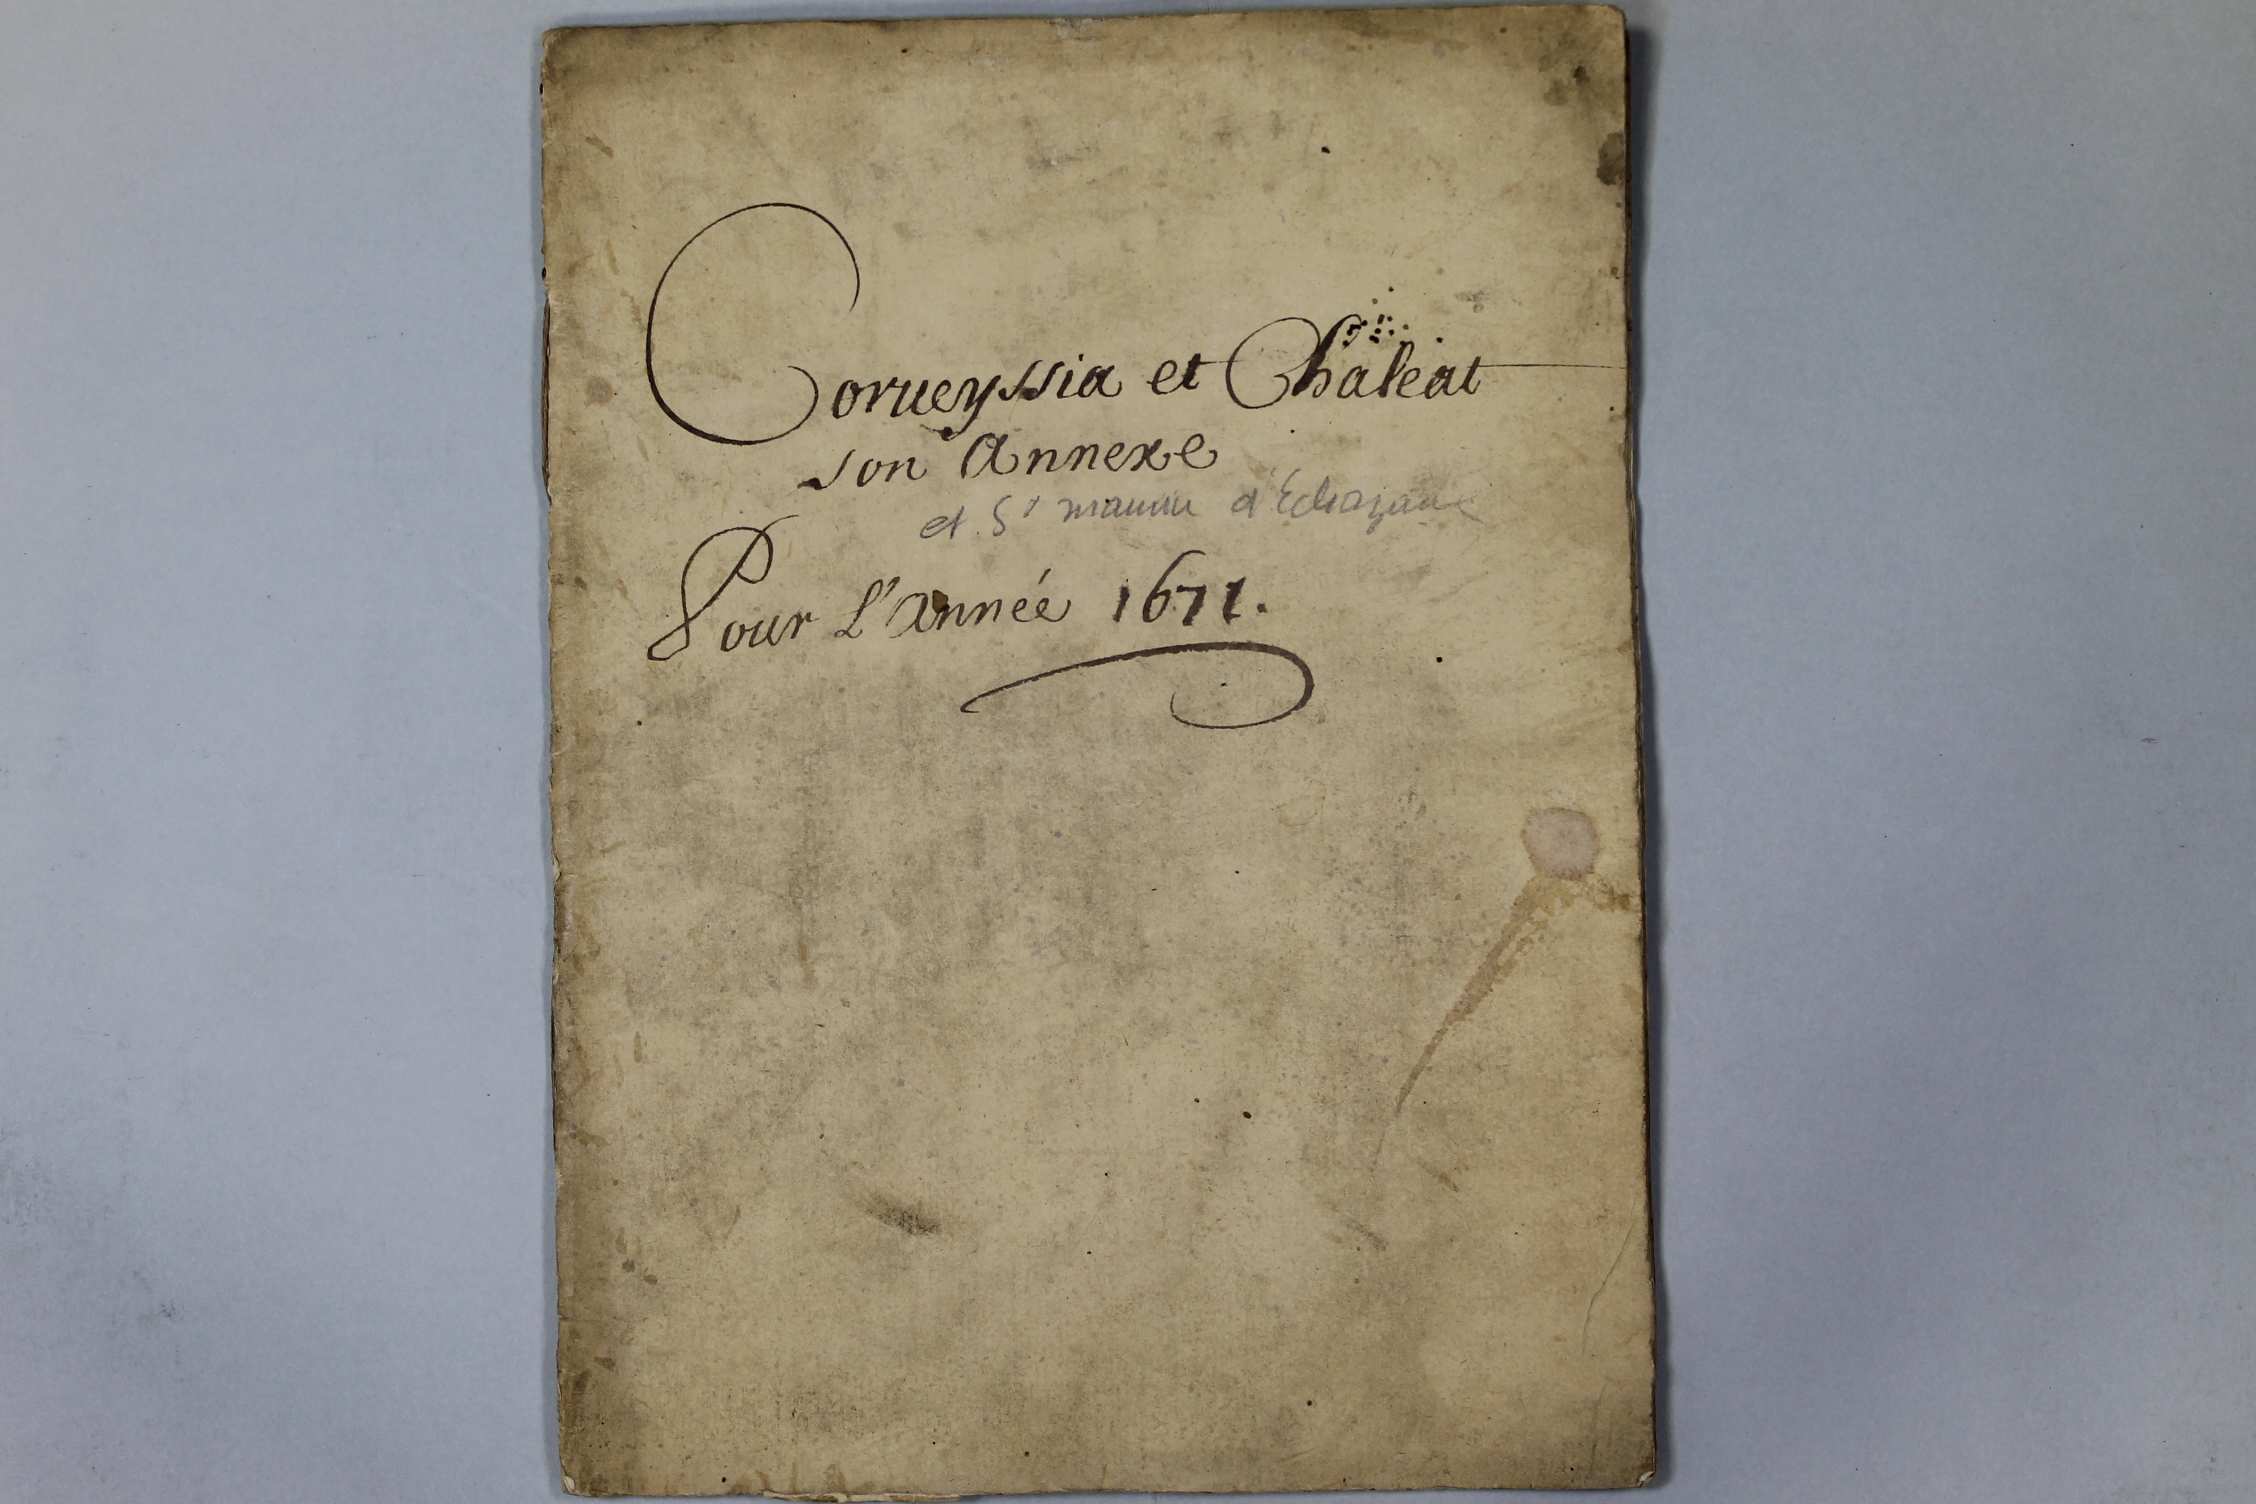 Corueyssia et Chaleat
son Annexe
et St maurice d'Echazaux
Pour L'Année 1671.